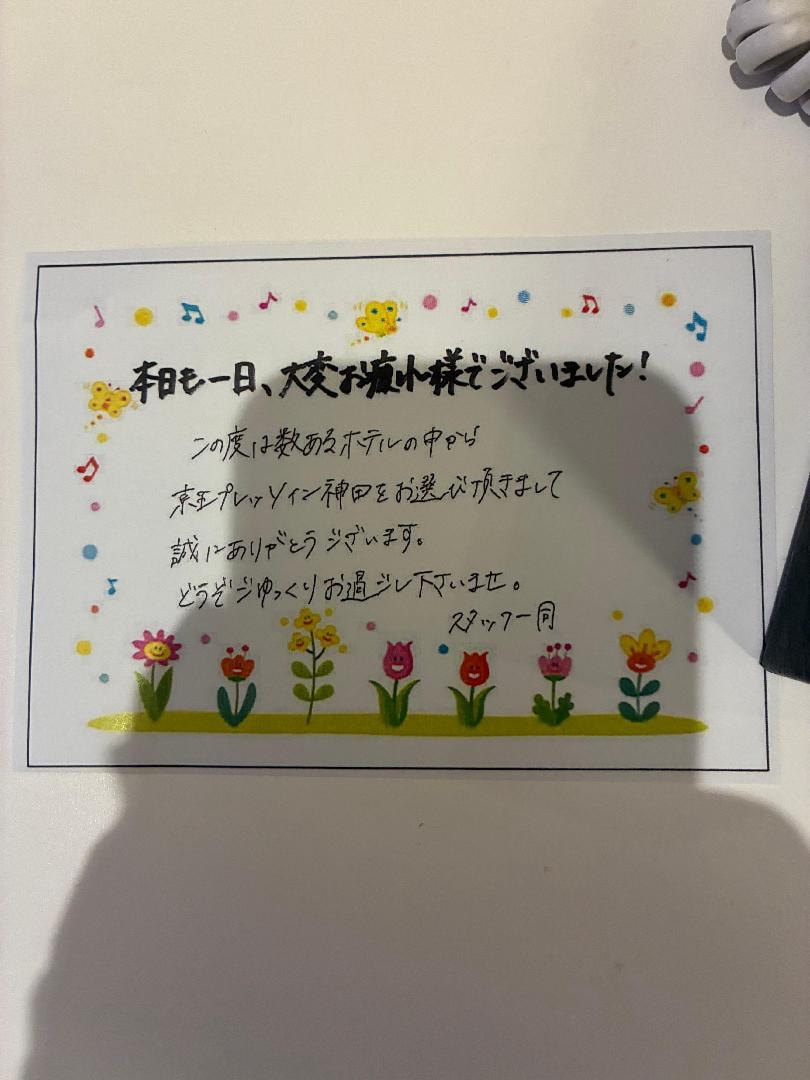 本日も一日、大変お疲れ様でございました!
この度は数あるホテルの中から
京王プレッソイン神田をお選び頂きまして
誠にありがとうございます。
どうぞごゆっくりお過ごし下さいませ。
スタッフ一同